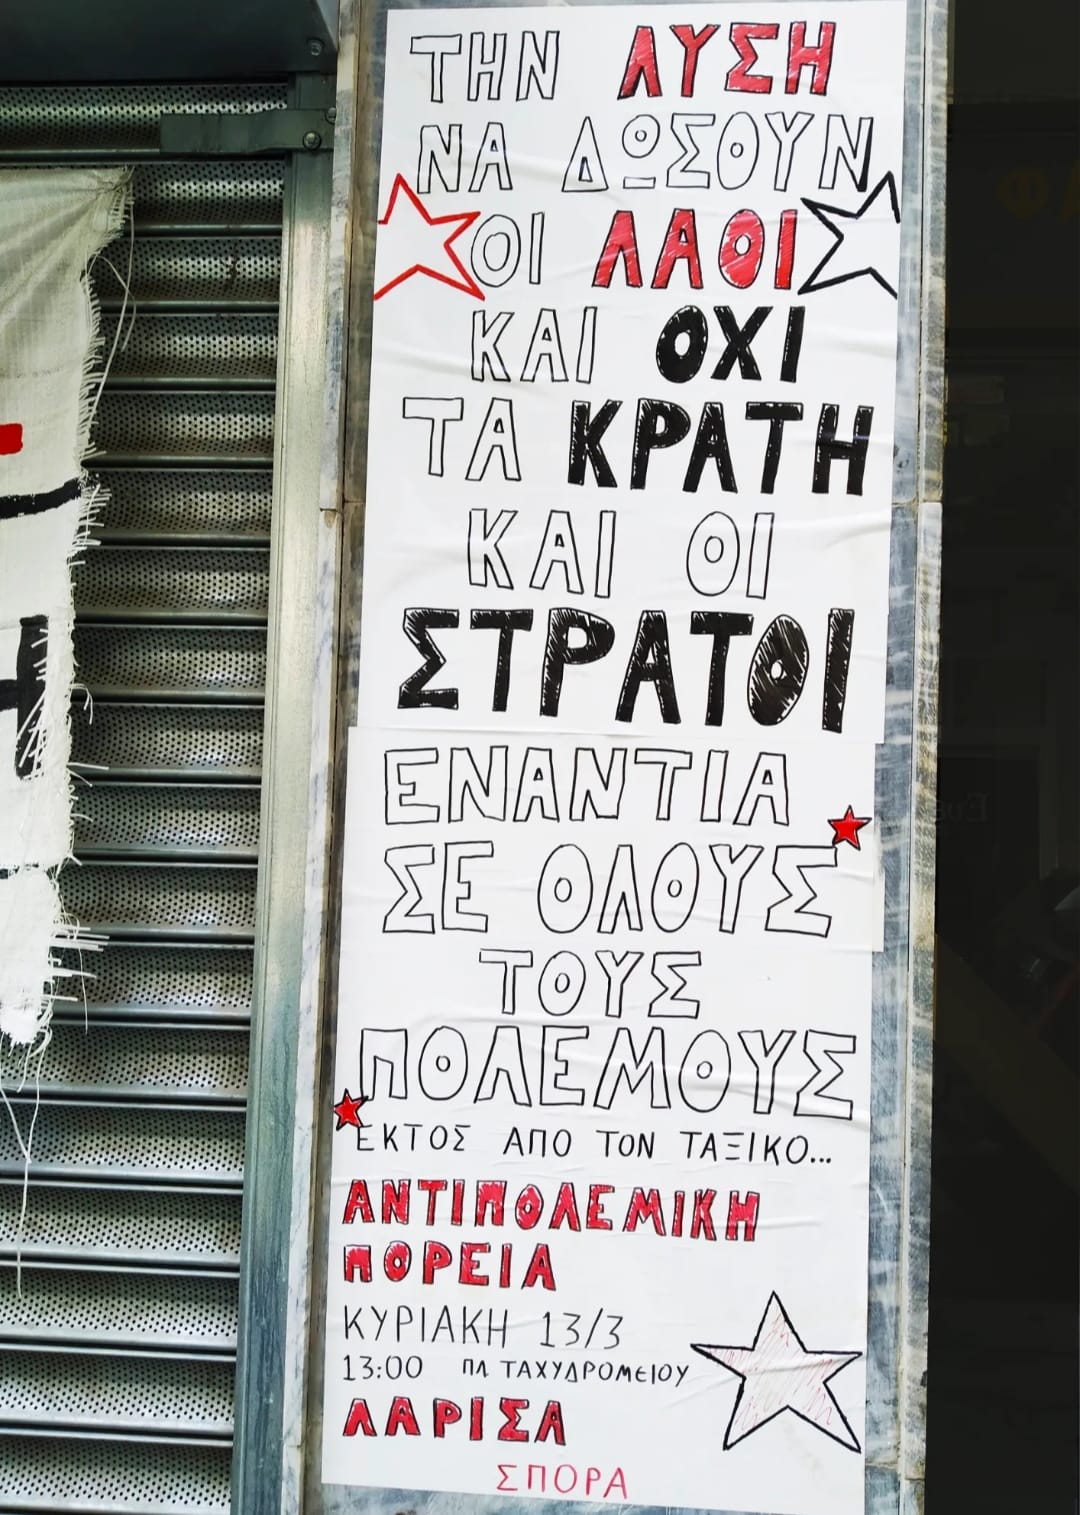 ΤΗΝ ΛΥΣΗ
ΝΑ ΔΩΣΟΥΝ
ΟΙ ΛΑΟΙ
ΚΑΙ ΟΧΙ
ΤΑ ΚΡΑΤΗ
ΚΑΙ ΟΙ
ΣΤΡΑΤΟΙ
ΕΝΑΝΤΙΑ
ΣΕ ΟΛΟΥΣ
ΤΟΥΣ
ΠΟΛΕΜΟΥΣ
ΕΚΤΟΣ ΑΠΟ ΤΟΝ ΤΑΞΙΚΟ...
ΑΝΤΙΠΟΛΕΜΙΚΗ
ΠΟΡΕΙΑ
ΚΥΡΙΑΚΗ 13/3
13:00 ΠΛ ΤΑΧΥΔΡΟΜΕΙΟΥ
ΛΑΡΙΣΑ
ΣΠΟΡΑ